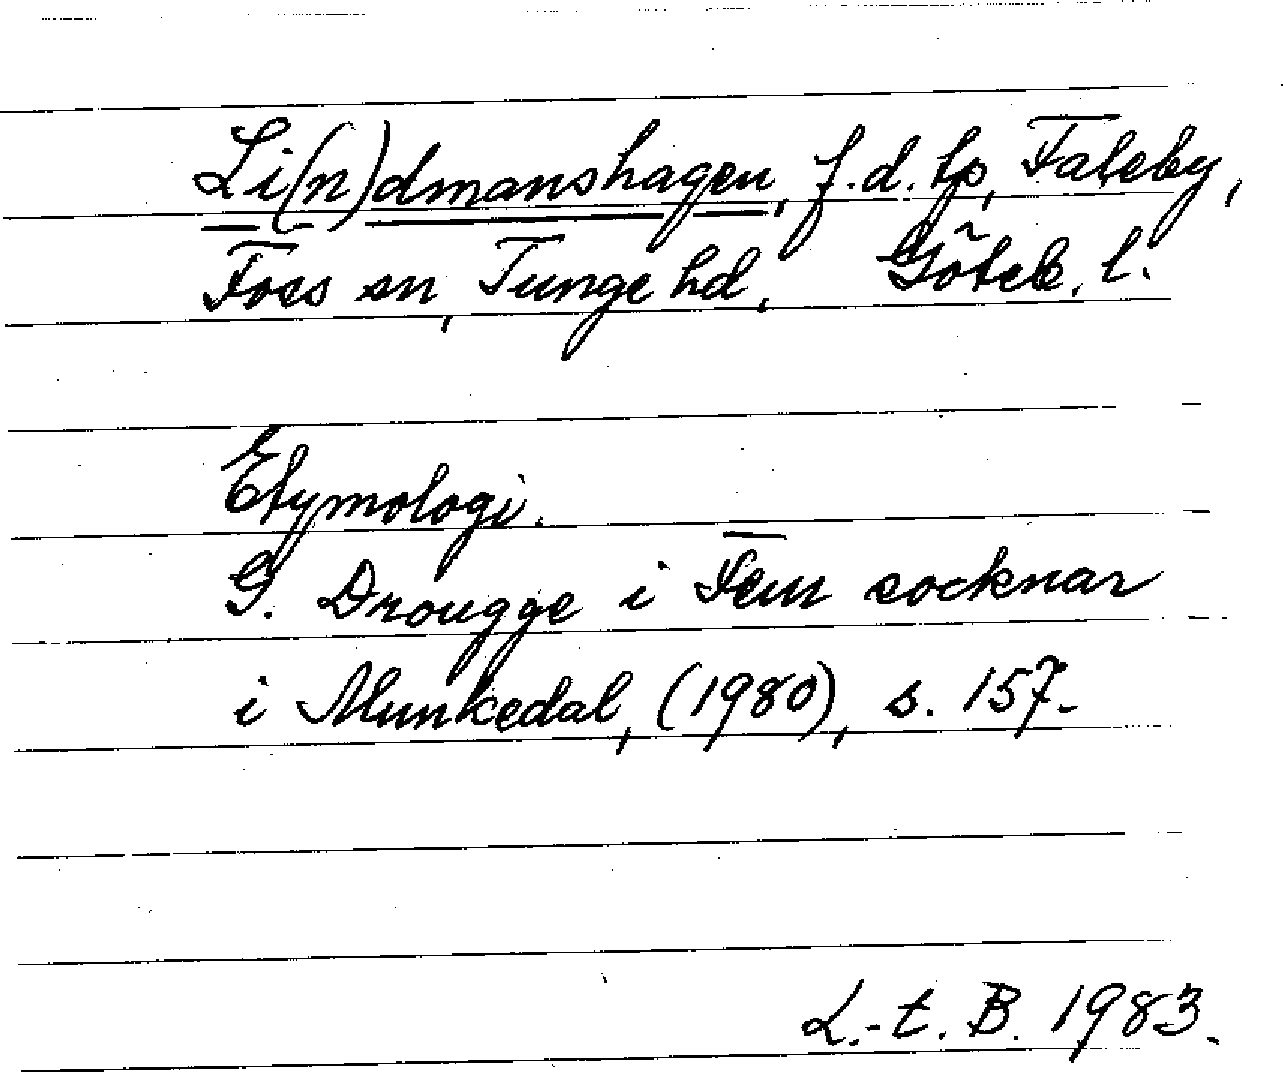 Li(n)dmanshagen, f.d. tp, Faleby,
Foss sn, Tunge hd, Göteb. l.
Etymologi.
G. Drougge i Fem socknar
i Munkedal, (1980), s. 157.
L.-t. B. 1983.